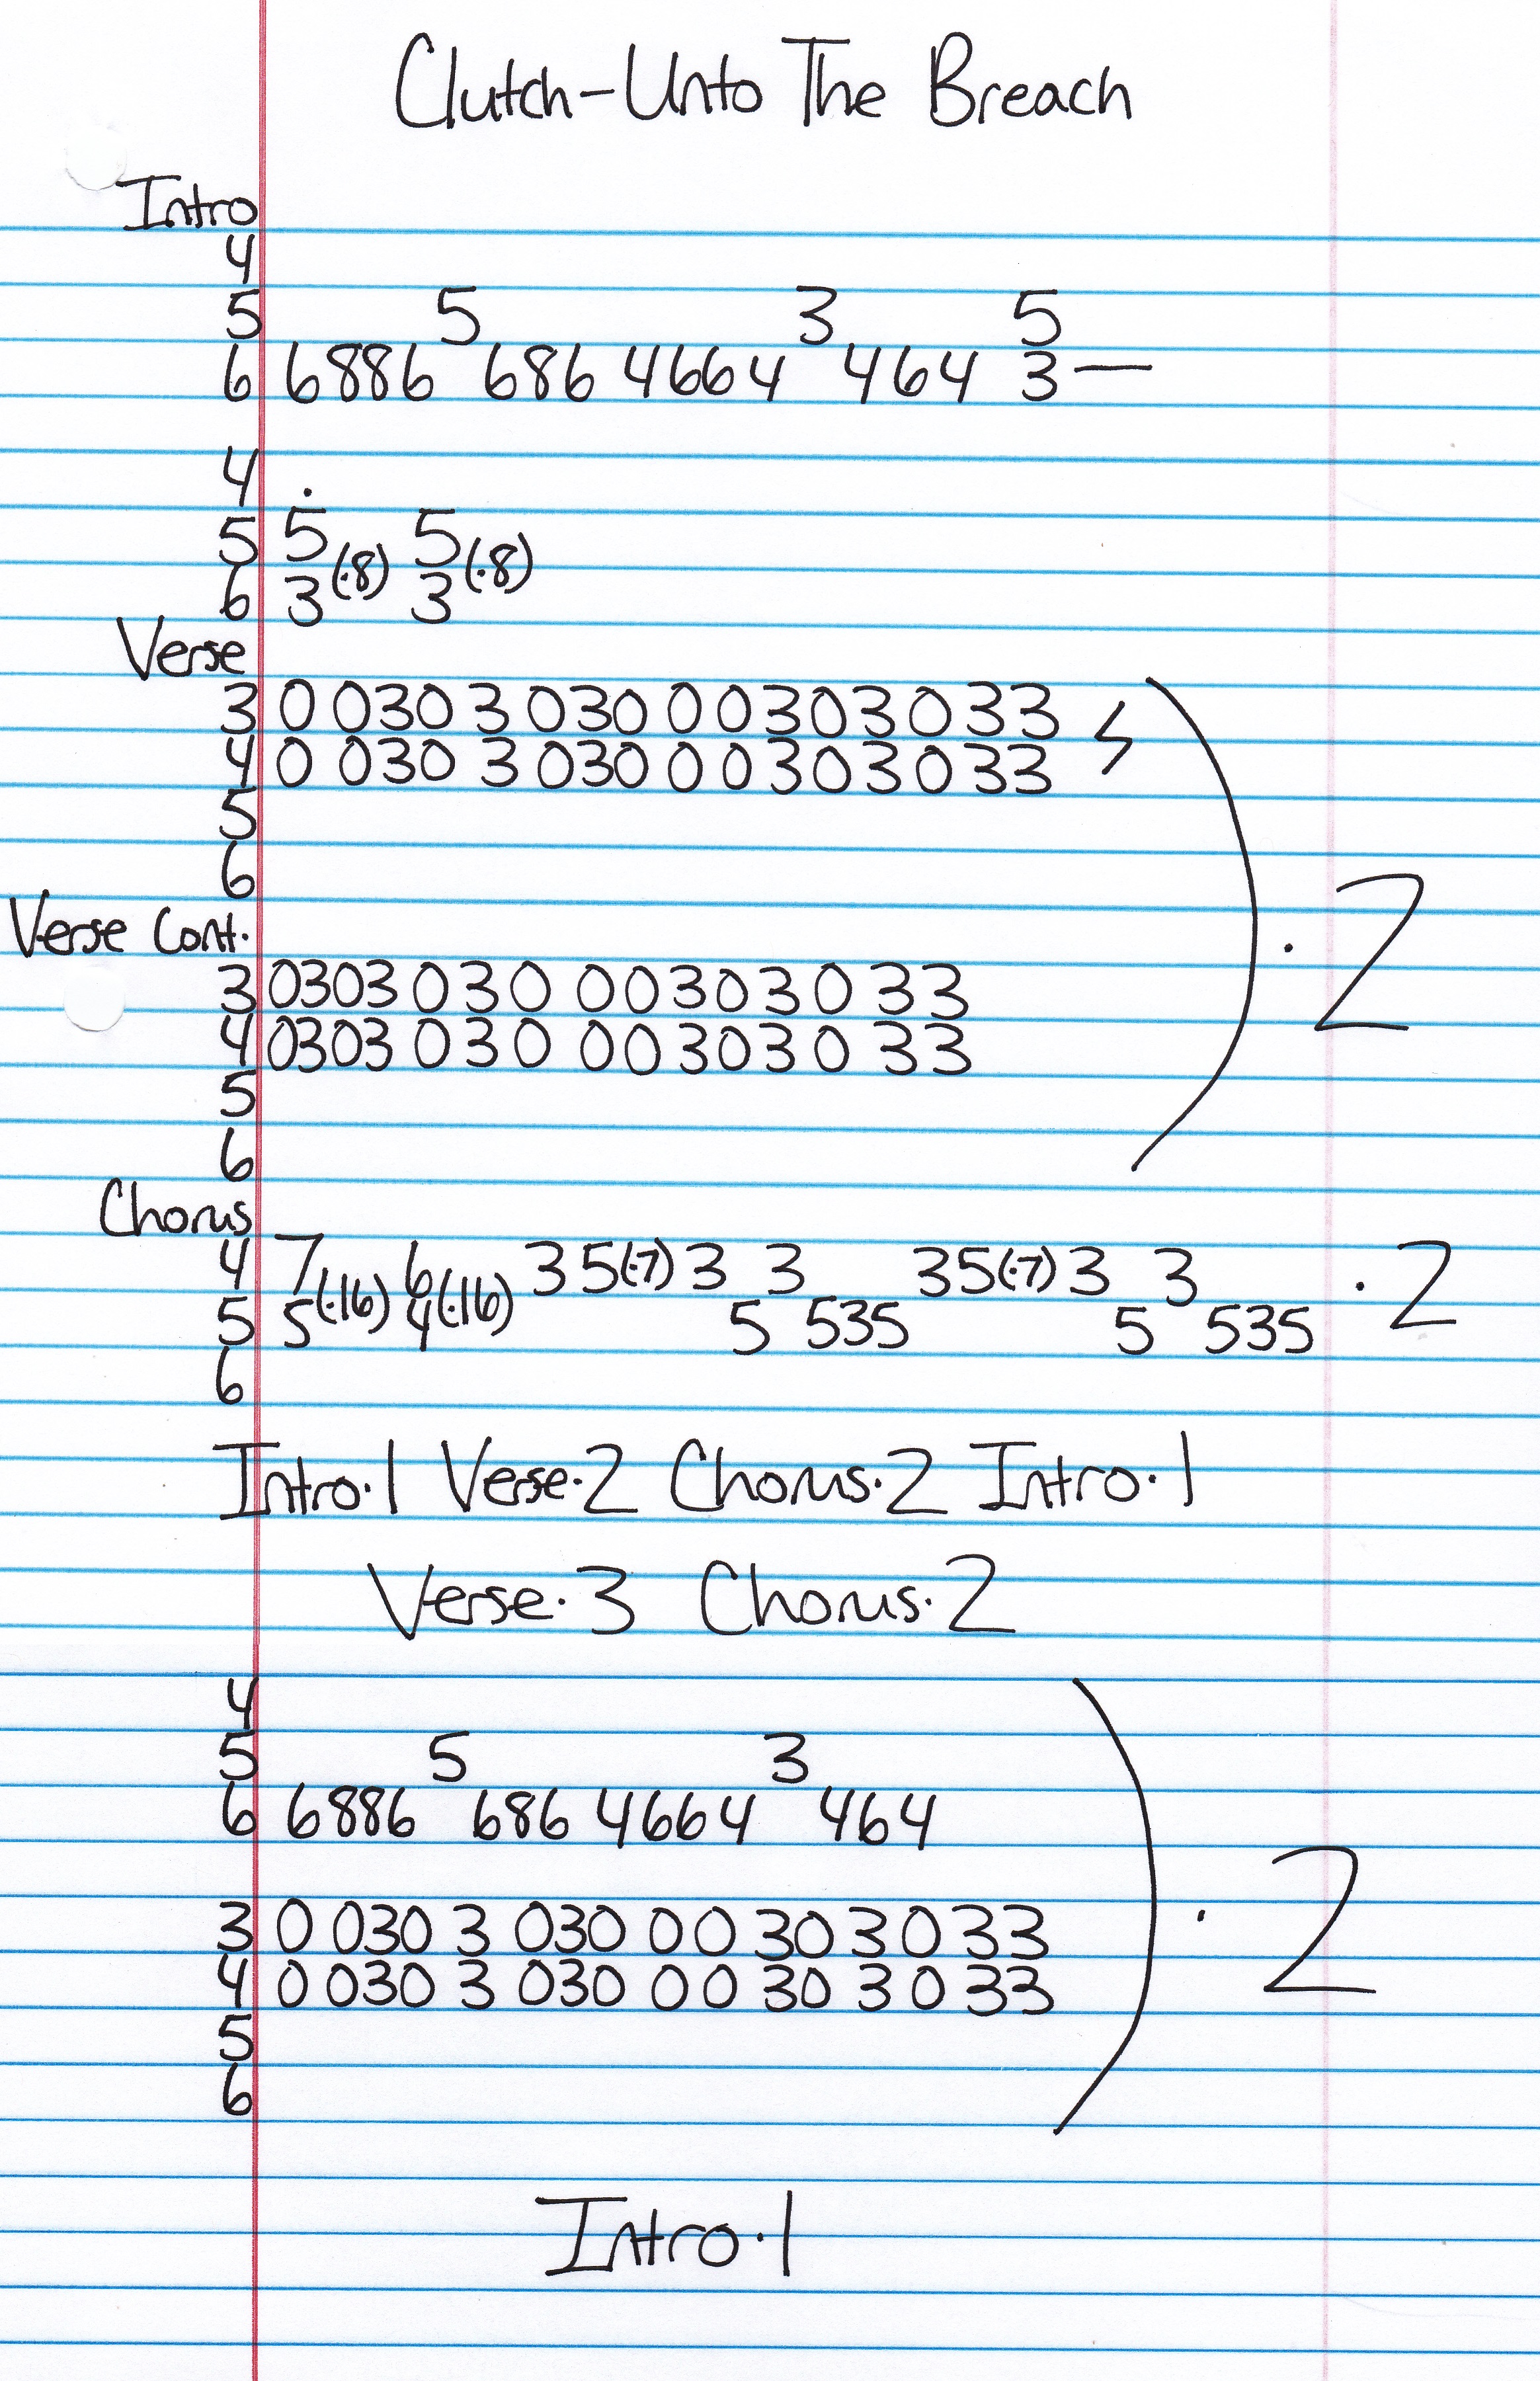 Clutch-Unto The Breach
Intro
4
5 5 3 5
6 6886 686 4664 464 3—
4 .
5 5(·8) 5(·8)
6 3 3
Verse
3 0 030 3 030 0 0303 0 33
4 0 030 3 030 0 0303 0 33
5
6
Verse Cont.
3 0303 0 3 0 0 0 3 0 3 0 3 3
4 0303 0 3 0 0 0 3 0 3 0 3 3
5
6
·2
Chorus
4 7(·16) 6(·16) 3 5(·7) 3 3 35(·7) 3 3 ·2
5 5 4 5 535 5 535
6
Intro·1 Verse·2 Chorus·2 Intro·1
Verse·3 Chorus·2
4
5 5 3
6 6886 686 4664 464
3 0 030 3 030 0 0 30 3 0 33
4 0 030 3 030 0 0 30 3 0 33
5
6
·2
Intro·1